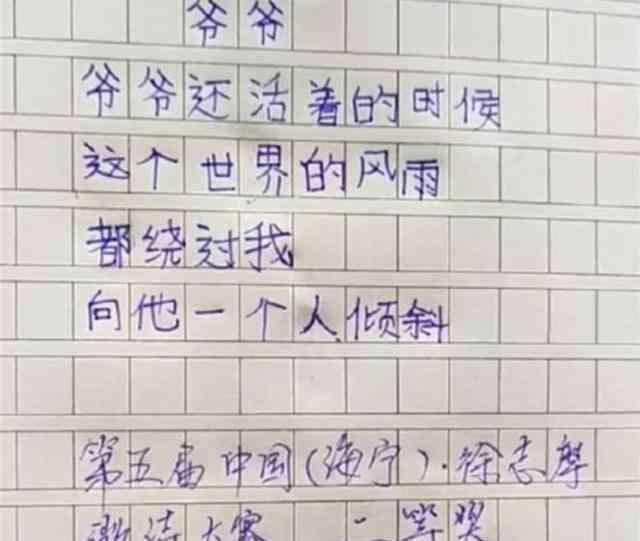 爷爷
爷爷还活着的时候
这个世界的风雨
都绕过我
向他一个人倾斜
第五届中国(海宁)·徐志摩
微诗大赛 二等奖